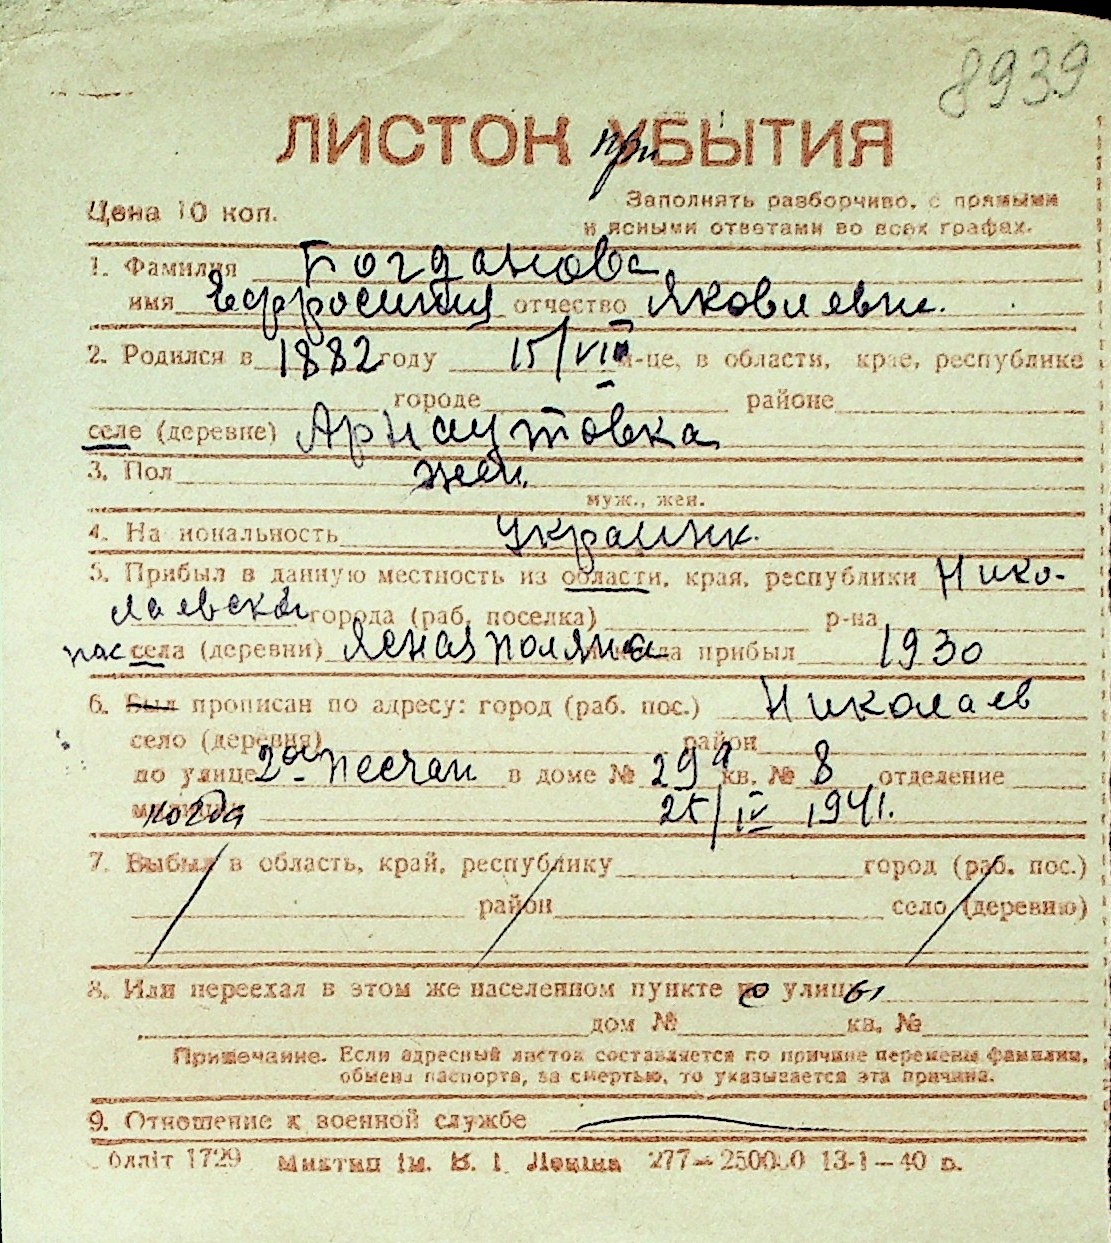 8939
ЛИСТОК при УБЫТИЯ
Цена 10 коп.
Заполнять разборчиво, с прямыми
и ясными ответами во всех графах.
1. Фамилия Богданова
имя Ефросиния отчество Яковлевн.
2. Родился в 1882 году 15/VIII м-це, в области, крае, республике
городе районе
селе (деревне) Арнаутовка
3. Пол жен.
муж., жен.
4. На иональность украинк.
5. Прибыл в данную местность из области, края, республики Нико-
лаевской города (раб. поселка) р-на
пос села (деревни) Ясная поляна когда прибыл 1930
6. Был прописан по адресу: город (раб. пос.) Николаев
село (деревня) район
по улице 2ая Песчан в доме № 29а кв. № 8 отделение
когда 25/IV 1941.
7. Выбыл в область, край, республику город (раб. пос.)
район село (деревню)
8. Или переехал в этом же населенном пункте со улицы
дом № кв. №
Примечание. Если адресный листок составляется по причине перемены фамилии,
обмена паспорта, за смертью, то указывается эта причина.
9. Отношение к военной службе
блліт 1729 Миктип ім. В. І. Леніна 277—250000 13-1—40 р.